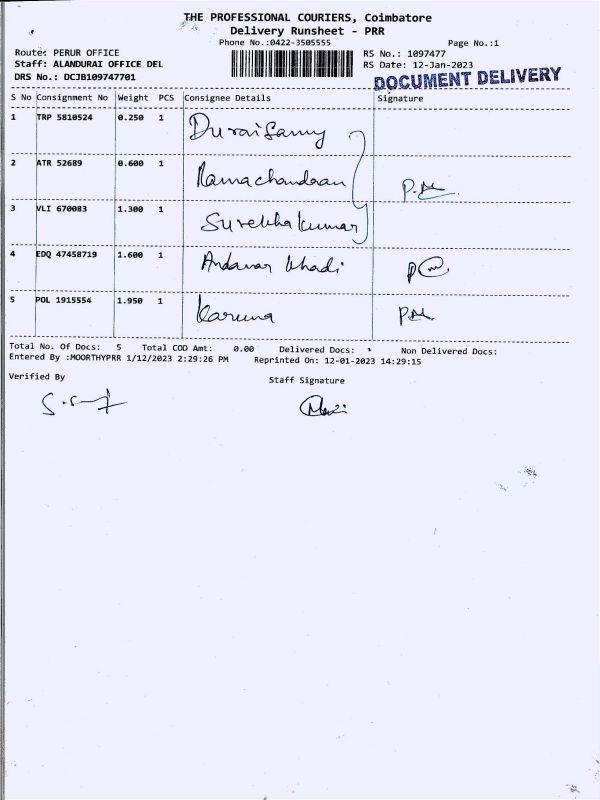 THE PROFESSIONAL COURIERS, Coimbatore
Delivery Runsheet - PRR
Phone No.:0422-3505555
Page No.:1
Route: PERUR OFFICE
RS No.: 1097477
Staff: ALANDURAI OFFICE DEL
RS Date: 12-Jan-2023
DRS No.: DCJB109747701
DOCUMENT DELIVERY
S No Consignment No Weight PCS Consignee Details Signature
1 TRP 5810524 0.250 1 Duraisamy
2 ATR 52689 0.600 1 Ramachandran
3 VLI 670083 1.300 1 Surekha kumar
4 EDQ 47458719 1.600 1 Andavar khadi
5 POL 1915554 1.950 1 Karuna
Total No. Of Docs: 5 Total COD Amt: 0.00 Delivered Docs: Non Delivered Docs:
Entered By :MOORTHYPRR 1/12/2023 2:29:26 PM Reprinted On: 12-01-2023 14:29:15
Verified By Staff Signature